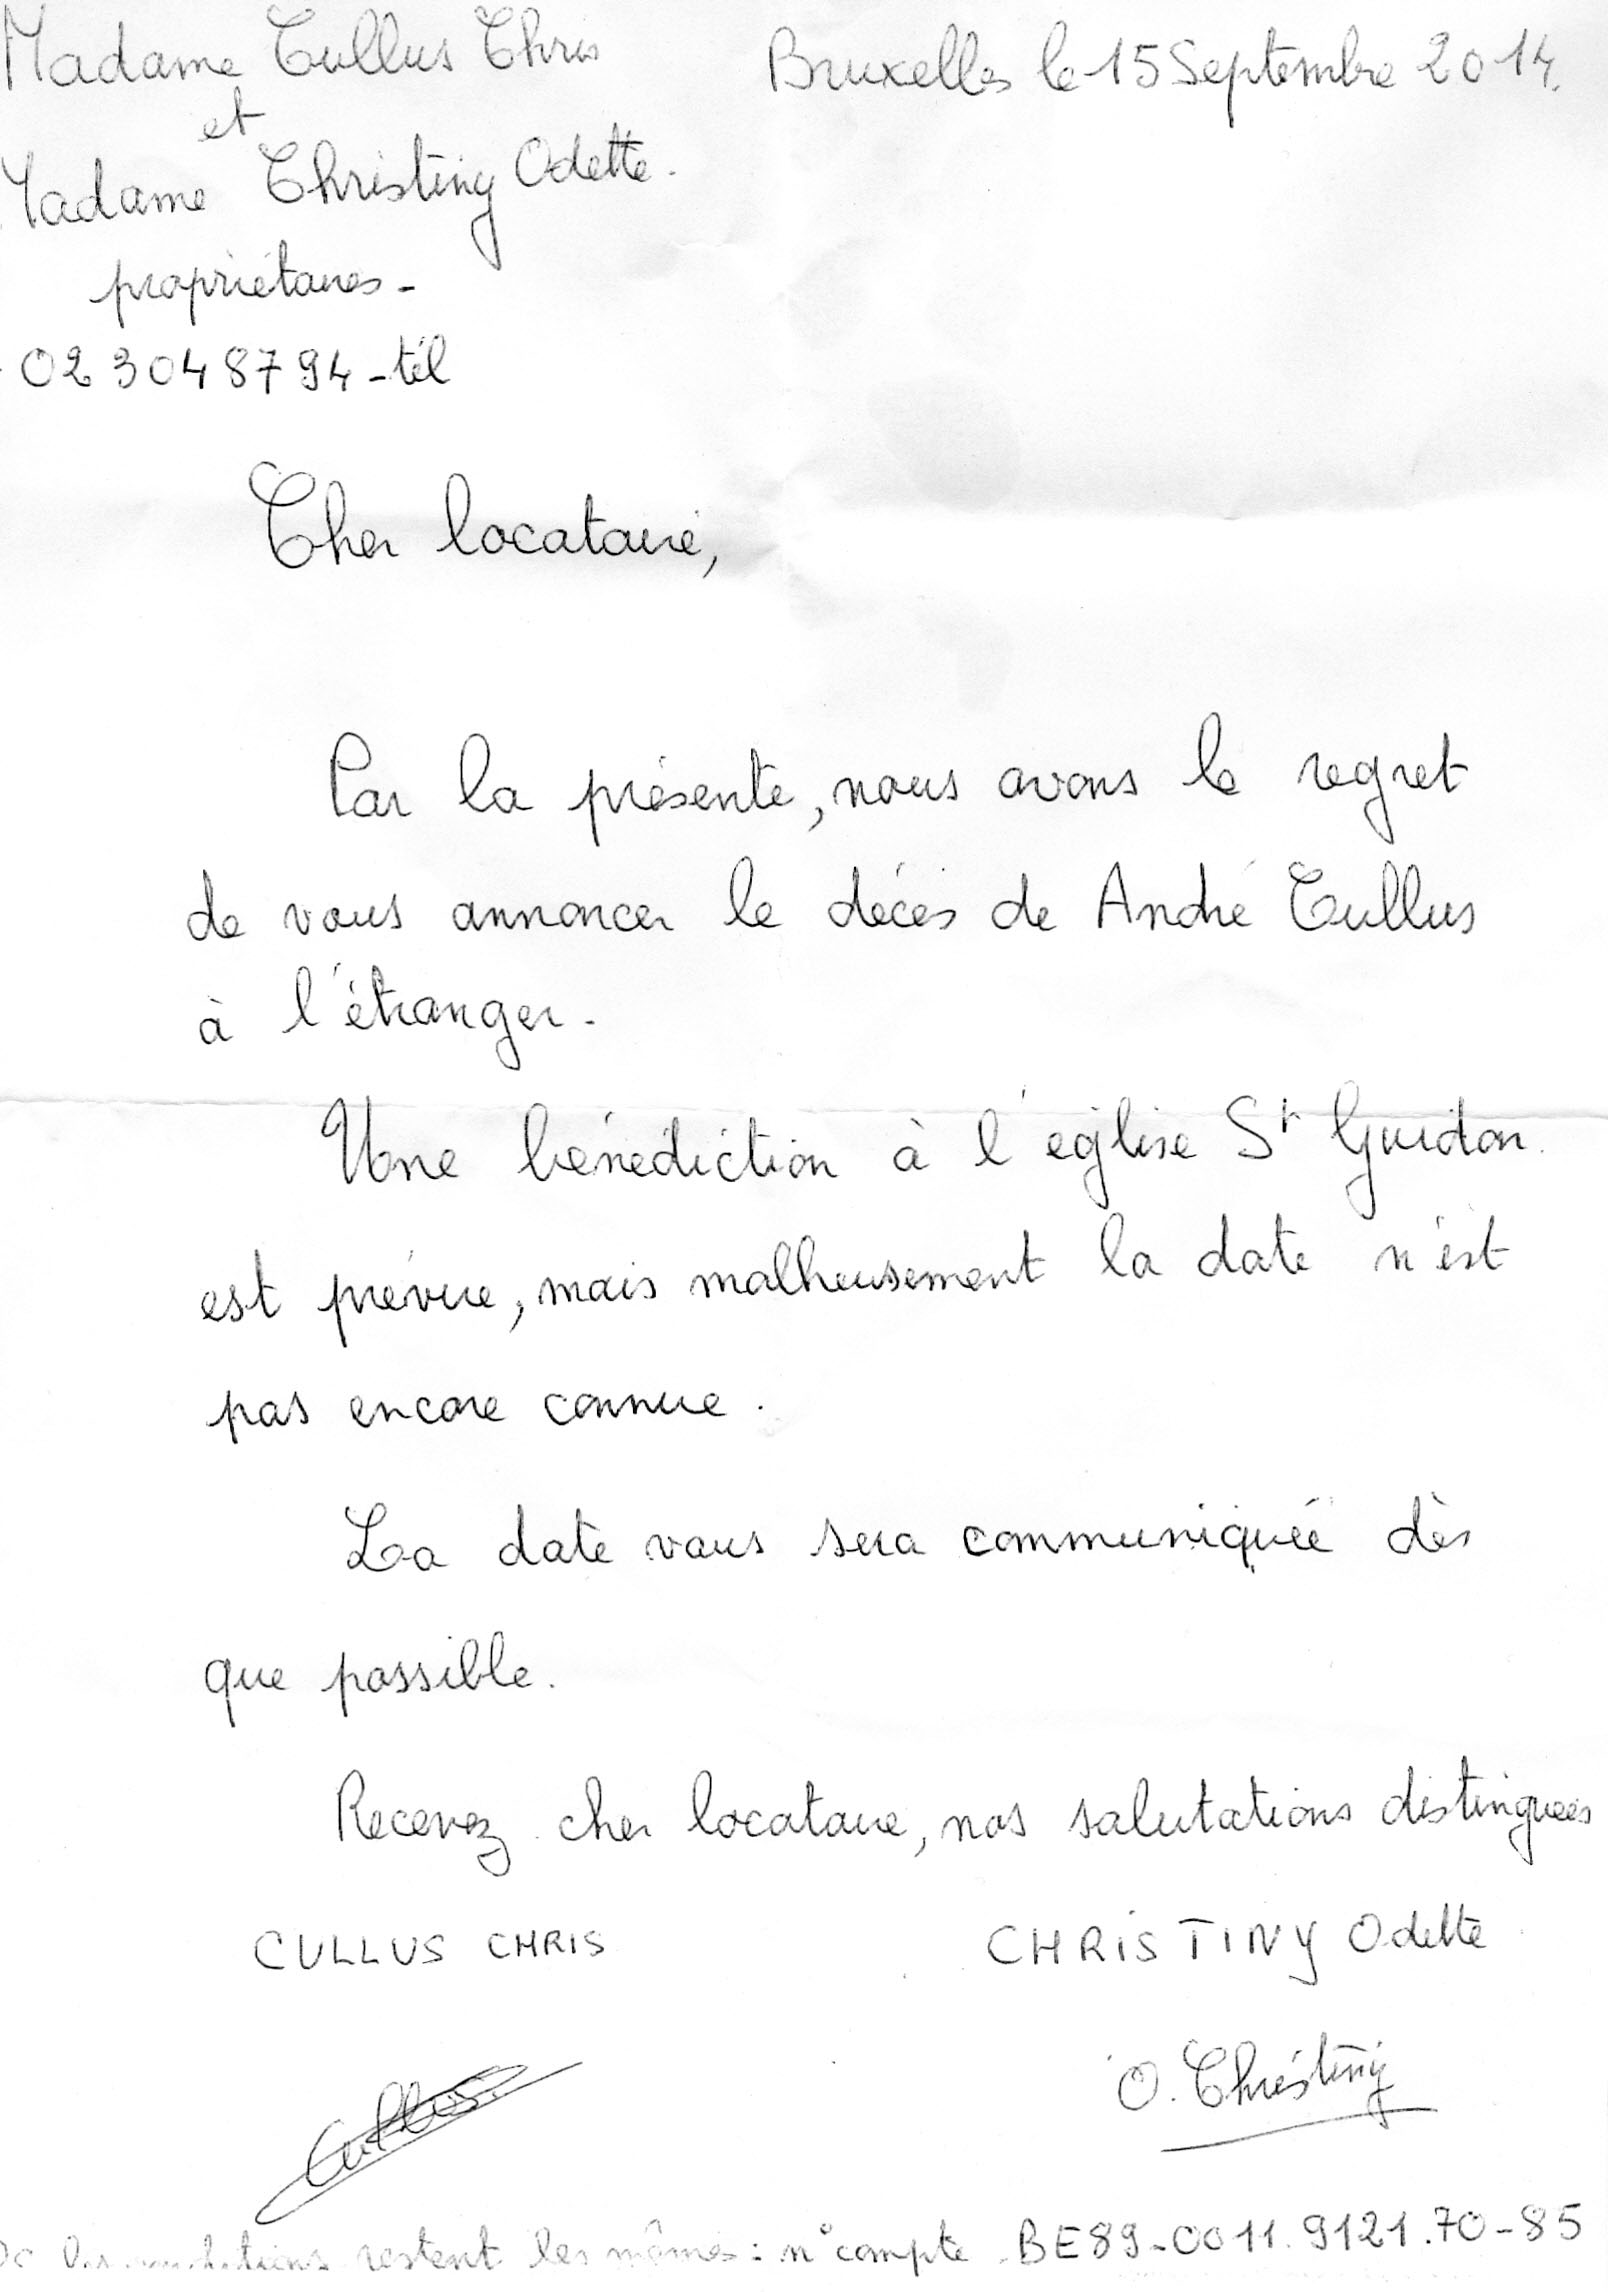 Madame Cullus Chris
Bruxelles le 15 Septembre 2014.
et
Madame Christiny Odette.
propriétaires -
02 3048794 - tél
Cher locataire,
Par la présente, nous avons le regret
de vous annoncer le décès de André Cullus
à l'étranger.
Une bénédiction à l'église St Guidon
est prévue, mais malheusement la date n'est
pas encore connue.
La date vous sera communiquée dès
que possible.
Recevez cher locataire, nos salutations distinguées
CULLUS CHRIS
CHRISTINY Odette
Cullus
O. Christiny
restent les mêmes : n° compte BE89-0011.9121.70-85